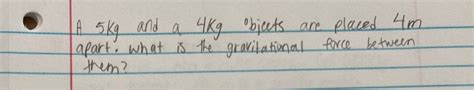 A 5kg and a 4kg objects are placed 4m
apart. What is the gravitational force between
them?